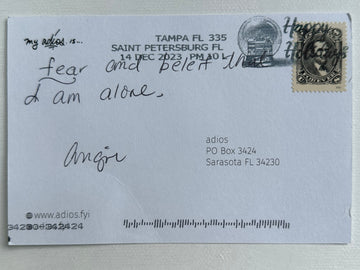 my adios is...
TAMPA FL 335
SAINT PETERSBURG FL
14 DEC 2023 PM 10 L
Happy
Holidays
fear and beleif that
I am alone.
Angie
adios
PO Box 3424
Sarasota FL 34230
www.adios.fyi